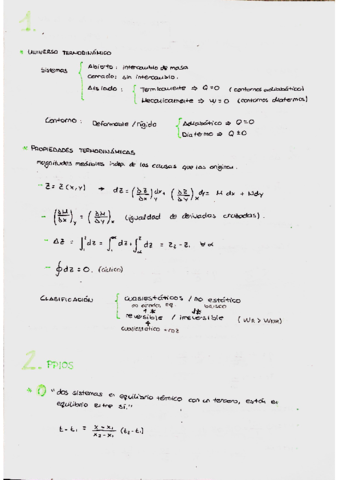 1.
UNIVERSO TERMODINÁMICO
Sistemas
Abierto: intercambio de masa
Cerrado: sin intercambio.
Aislado: Térmicamente ⇒ Q=0 (contornos adiabáticos)
Mecánicamente ⇒ W=0 (contornos diatermos)
Contorno: Deformable / rígido
Adiabático ⇒ Q=0
Diatermo ⇒ Q≠0
PROPIEDADES TERMODINÁMICAS
magnitudes medibles indep. de las causas que las originan.
- Z = Z(x,y) → dZ = (∂Z/∂x)y dx + (∂Z/∂y)x dy = M dx + N dy
- (∂M/∂y)x = (∂N/∂x)y (igualdad de derivadas cruzadas).
- ΔZ = ∫₁² dZ = ∫₁^α dZ + ∫_α² dZ = Z₂ - Z₁ ∀α
- ∮ dZ = 0. (cíclico)
CLASIFICACIÓN
cuasiestáticos / no estático
reversible / irreversible
cuasiestático + roz
2. PPIOS
"dos sistemas en equilibrio térmico con un tercero, están en
equilibrio entre sí."
t - t₁ = (x - x₁)/(x₂ - x₁) (t₂ - t₁)